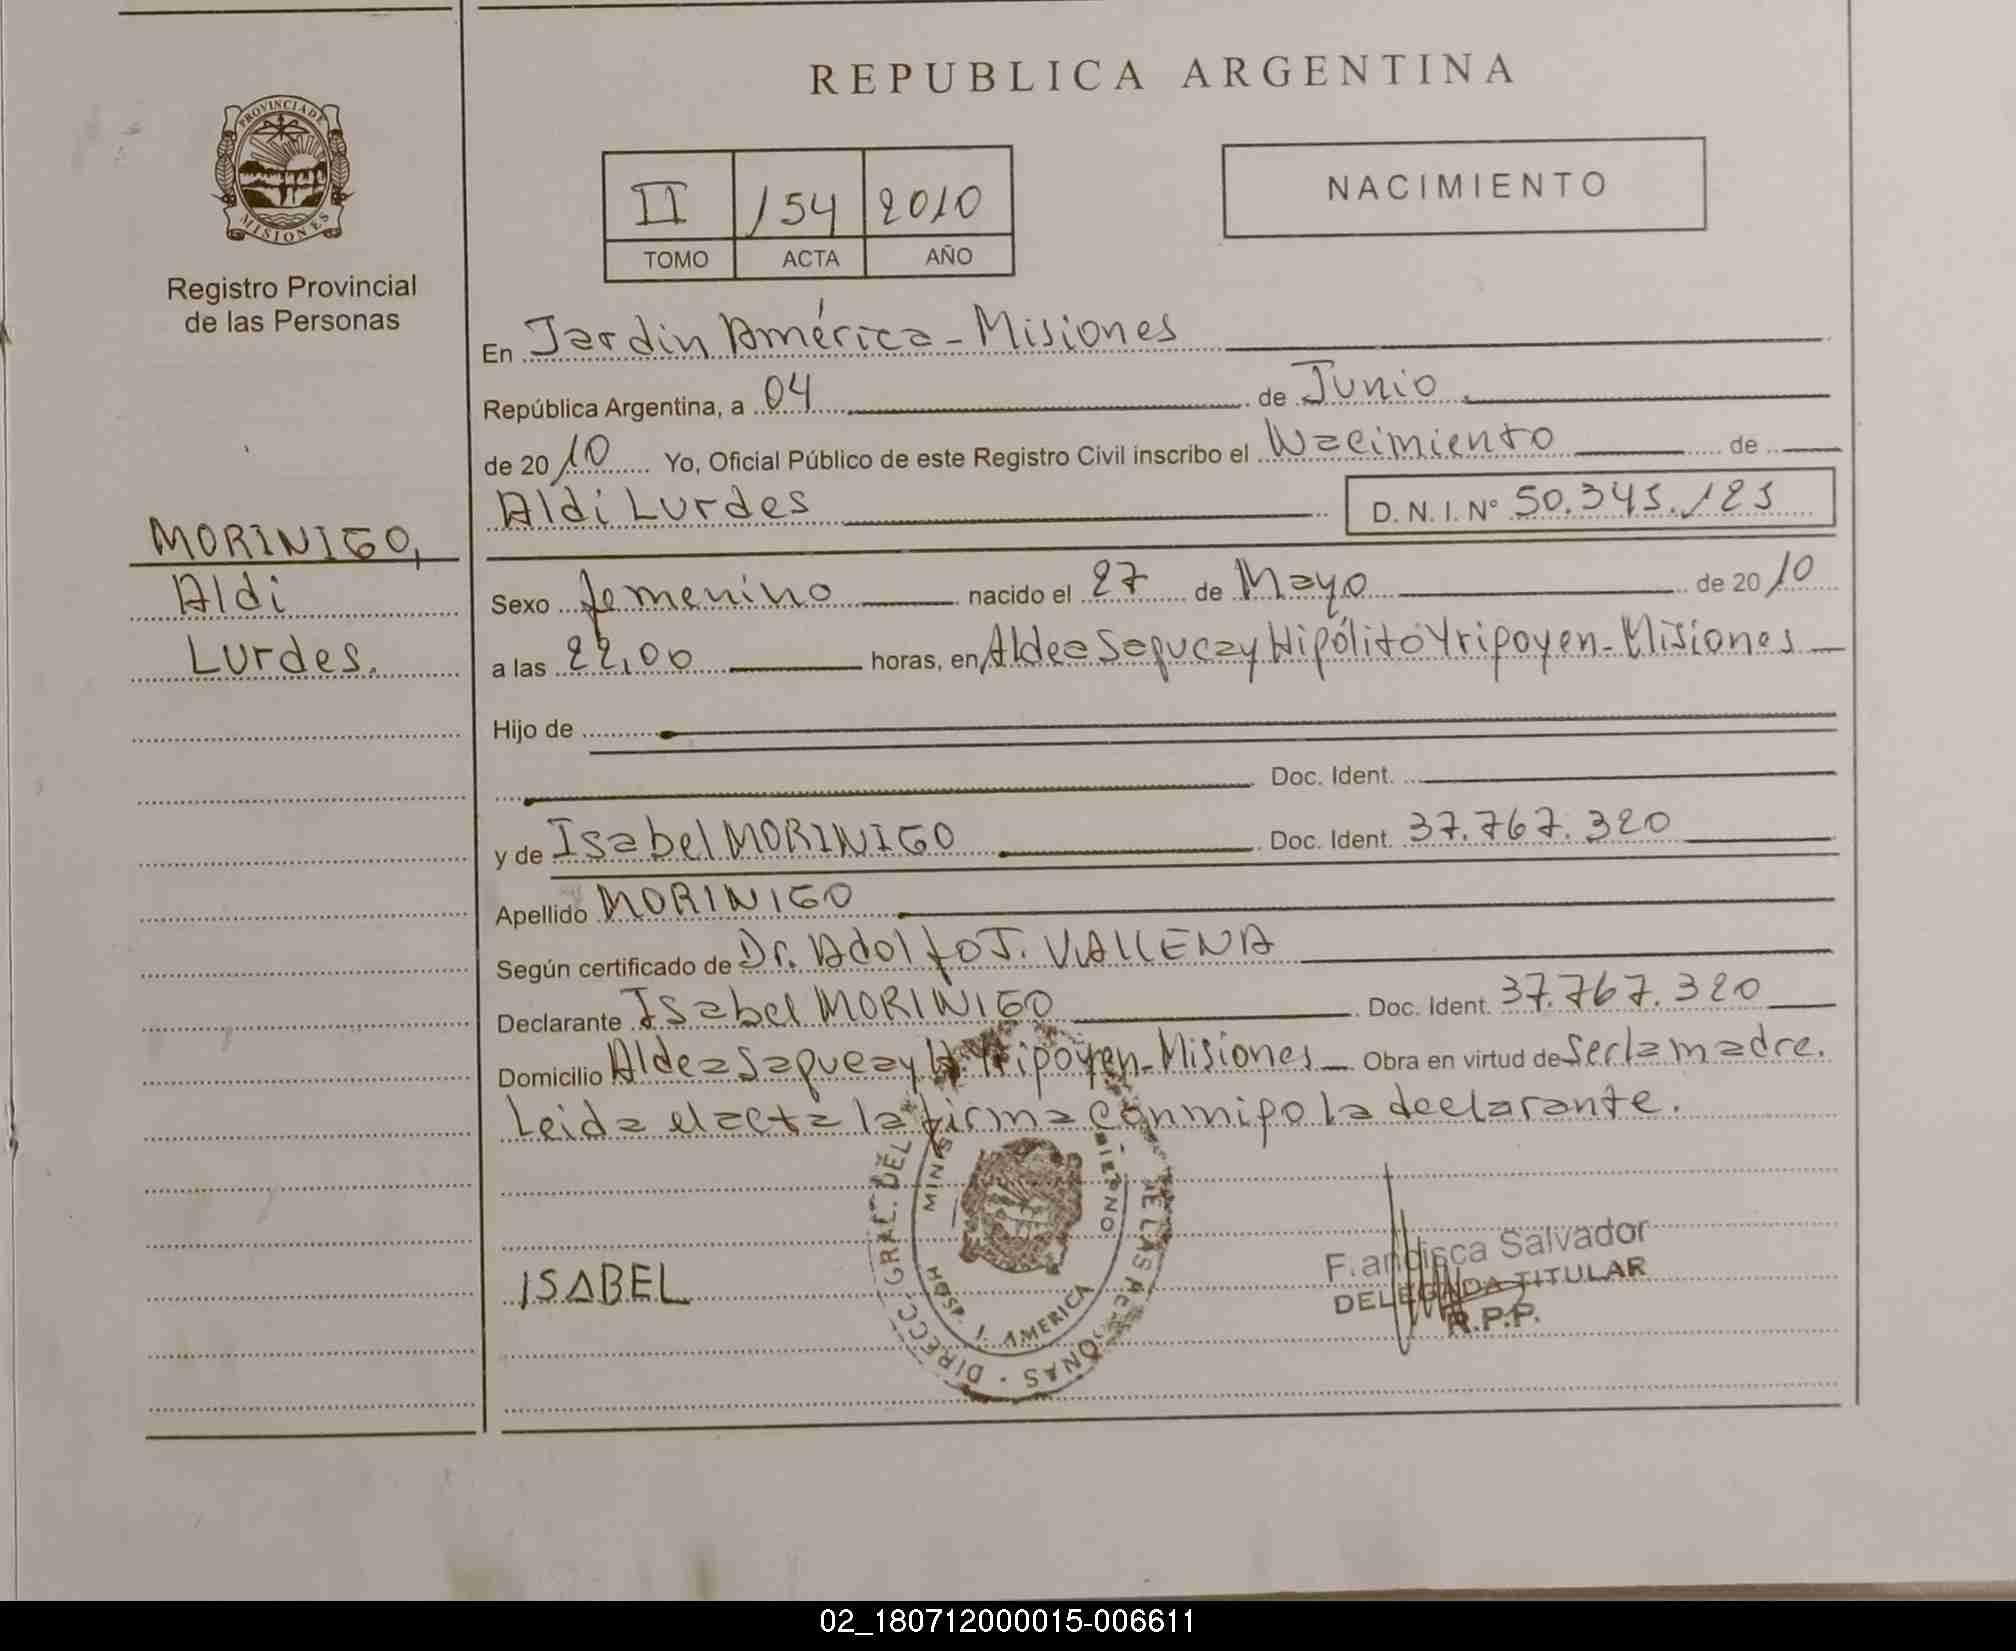 REPUBLICA ARGENTINA
PROVINCIA DE
MISIONES
Registro Provincial
de las Personas
II 154 2010
TOMO ACTA AÑO
NACIMIENTO
MORINIGO,
Aldi
Lurdes.
En Jardin América - Misiones
República Argentina, a 04 de Junio
de 2010 Yo, Oficial Público de este Registro Civil inscribo el Nacimiento de
Aldi Lurdes D. N. I. Nº 50.345.125
Sexo femenino nacido el 27 de Mayo de 2010
a las 22,00 horas, en Aldea Sapucay Hipólito Yripoyen - Misiones
Hijo de
Doc. Ident.
y de Isabel MORINIGO Doc. Ident. 37.767.320
Apellido MORINIGO
Según certificado de Dr. Adolfo J. VALLENA
Declarante Isabel MORINIGO Doc. Ident. 37.767.320
Domicilio Aldea Sapucay H. Yripoyen - Misiones Obra en virtud de ser la madre.
Leida el acta la firma conmipo la declarante.
ISABEL
DIRECC. GRAL. DEL DE LAS PERSONAS
HOSP. J. AMERICA
Francisca Salvador
DELEGADA TITULAR
R.P.P.
02_180712000015-006611